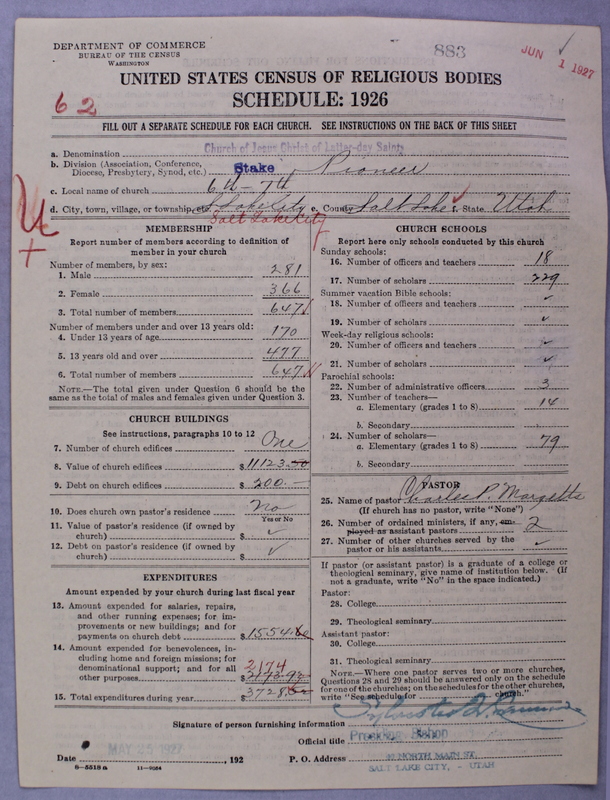 DEPARTMENT OF COMMERCE
BUREAU OF THE CENSUS
WASHINGTON
883
JUN 1 1927
UNITED STATES CENSUS OF RELIGIOUS BODIES
SCHEDULE: 1926
62
FILL OUT A SEPARATE SCHEDULE FOR EACH CHURCH. SEE INSTRUCTIONS ON THE BACK OF THIS SHEET
a. Denomination Church of Jesus Christ of Latter-day Saints
b. Division (Association, Conference, Diocese, Presbytery, Synod, etc.) Stake Pioneer
c. Local name of church 6th - 7th
d. City, town, village, or township, etc. Salt Lake City e. County Salt Lake f. State Utah
Salt Lake City
MEMBERSHIP
Report number of members according to definition of
member in your church
Number of members, by sex:
1. Male 281
2. Female 366
3. Total number of members 647
Number of members under and over 13 years old:
4. Under 13 years of age 170
5. 13 years old and over 477
6. Total number of members 647
NOTE.—The total given under Question 6 should be the
same as the total of males and females given under Question 3.
CHURCH BUILDINGS
See instructions, paragraphs 10 to 12
7. Number of church edifices One
8. Value of church edifices $11123.50
9. Debt on church edifices $200.—
10. Does church own pastor's residence No
Yes or No
11. Value of pastor's residence (if owned by
church) $ ✓
12. Debt on pastor's residence (if owned by
church) $ ✓
EXPENDITURES
Amount expended by your church during last fiscal year
13. Amount expended for salaries, repairs,
and other running expenses; for im-
provements or new buildings; and for
payments on church debt $1554
14. Amount expended for benevolences, in-
cluding home and foreign missions; for
denominational support; and for all
other purposes $2173.93
2174
15. Total expenditures during year $3728
CHURCH SCHOOLS
Report here only schools conducted by this church
Sunday schools:
16. Number of officers and teachers 18
17. Number of scholars 229
Summer vacation Bible schools:
18. Number of officers and teachers ✓
19. Number of scholars ✓
Week-day religious schools:
20. Number of officers and teachers ✓
21. Number of scholars ✓
Parochial schools:
22. Number of administrative officers 3
23. Number of teachers—
a. Elementary (grades 1 to 8) 14
b. Secondary
24. Number of scholars—
a. Elementary (grades 1 to 8) 79
b. Secondary
PASTOR
25. Name of pastor Charles P. Margetts
(If church has no pastor, write "None")
26. Number of ordained ministers, if any, em-
ployed as assistant pastors 2
27. Number of other churches served by the
pastor or his assistants ✓
If pastor (or assistant pastor) is a graduate of a college or
theological seminary, give name of institution below. (If
not a graduate, write "No" in the space indicated.)
Pastor:
28. College
29. Theological seminary
Assistant pastor:
30. College
31. Theological seminary
NOTE.—Where one pastor serves two or more churches,
Questions 28 and 29 should be answered only on the schedule
for one of the churches; on the schedules for the other churches,
write "See schedule for church."
Signature of person furnishing information Sylvester Q. Cannon
Official title Presiding Bishop
Date MAY 25 1927, 192 P. O. Address 40 NORTH MAIN ST.
SALT LAKE CITY, - UTAH
8—5518a 11—9084